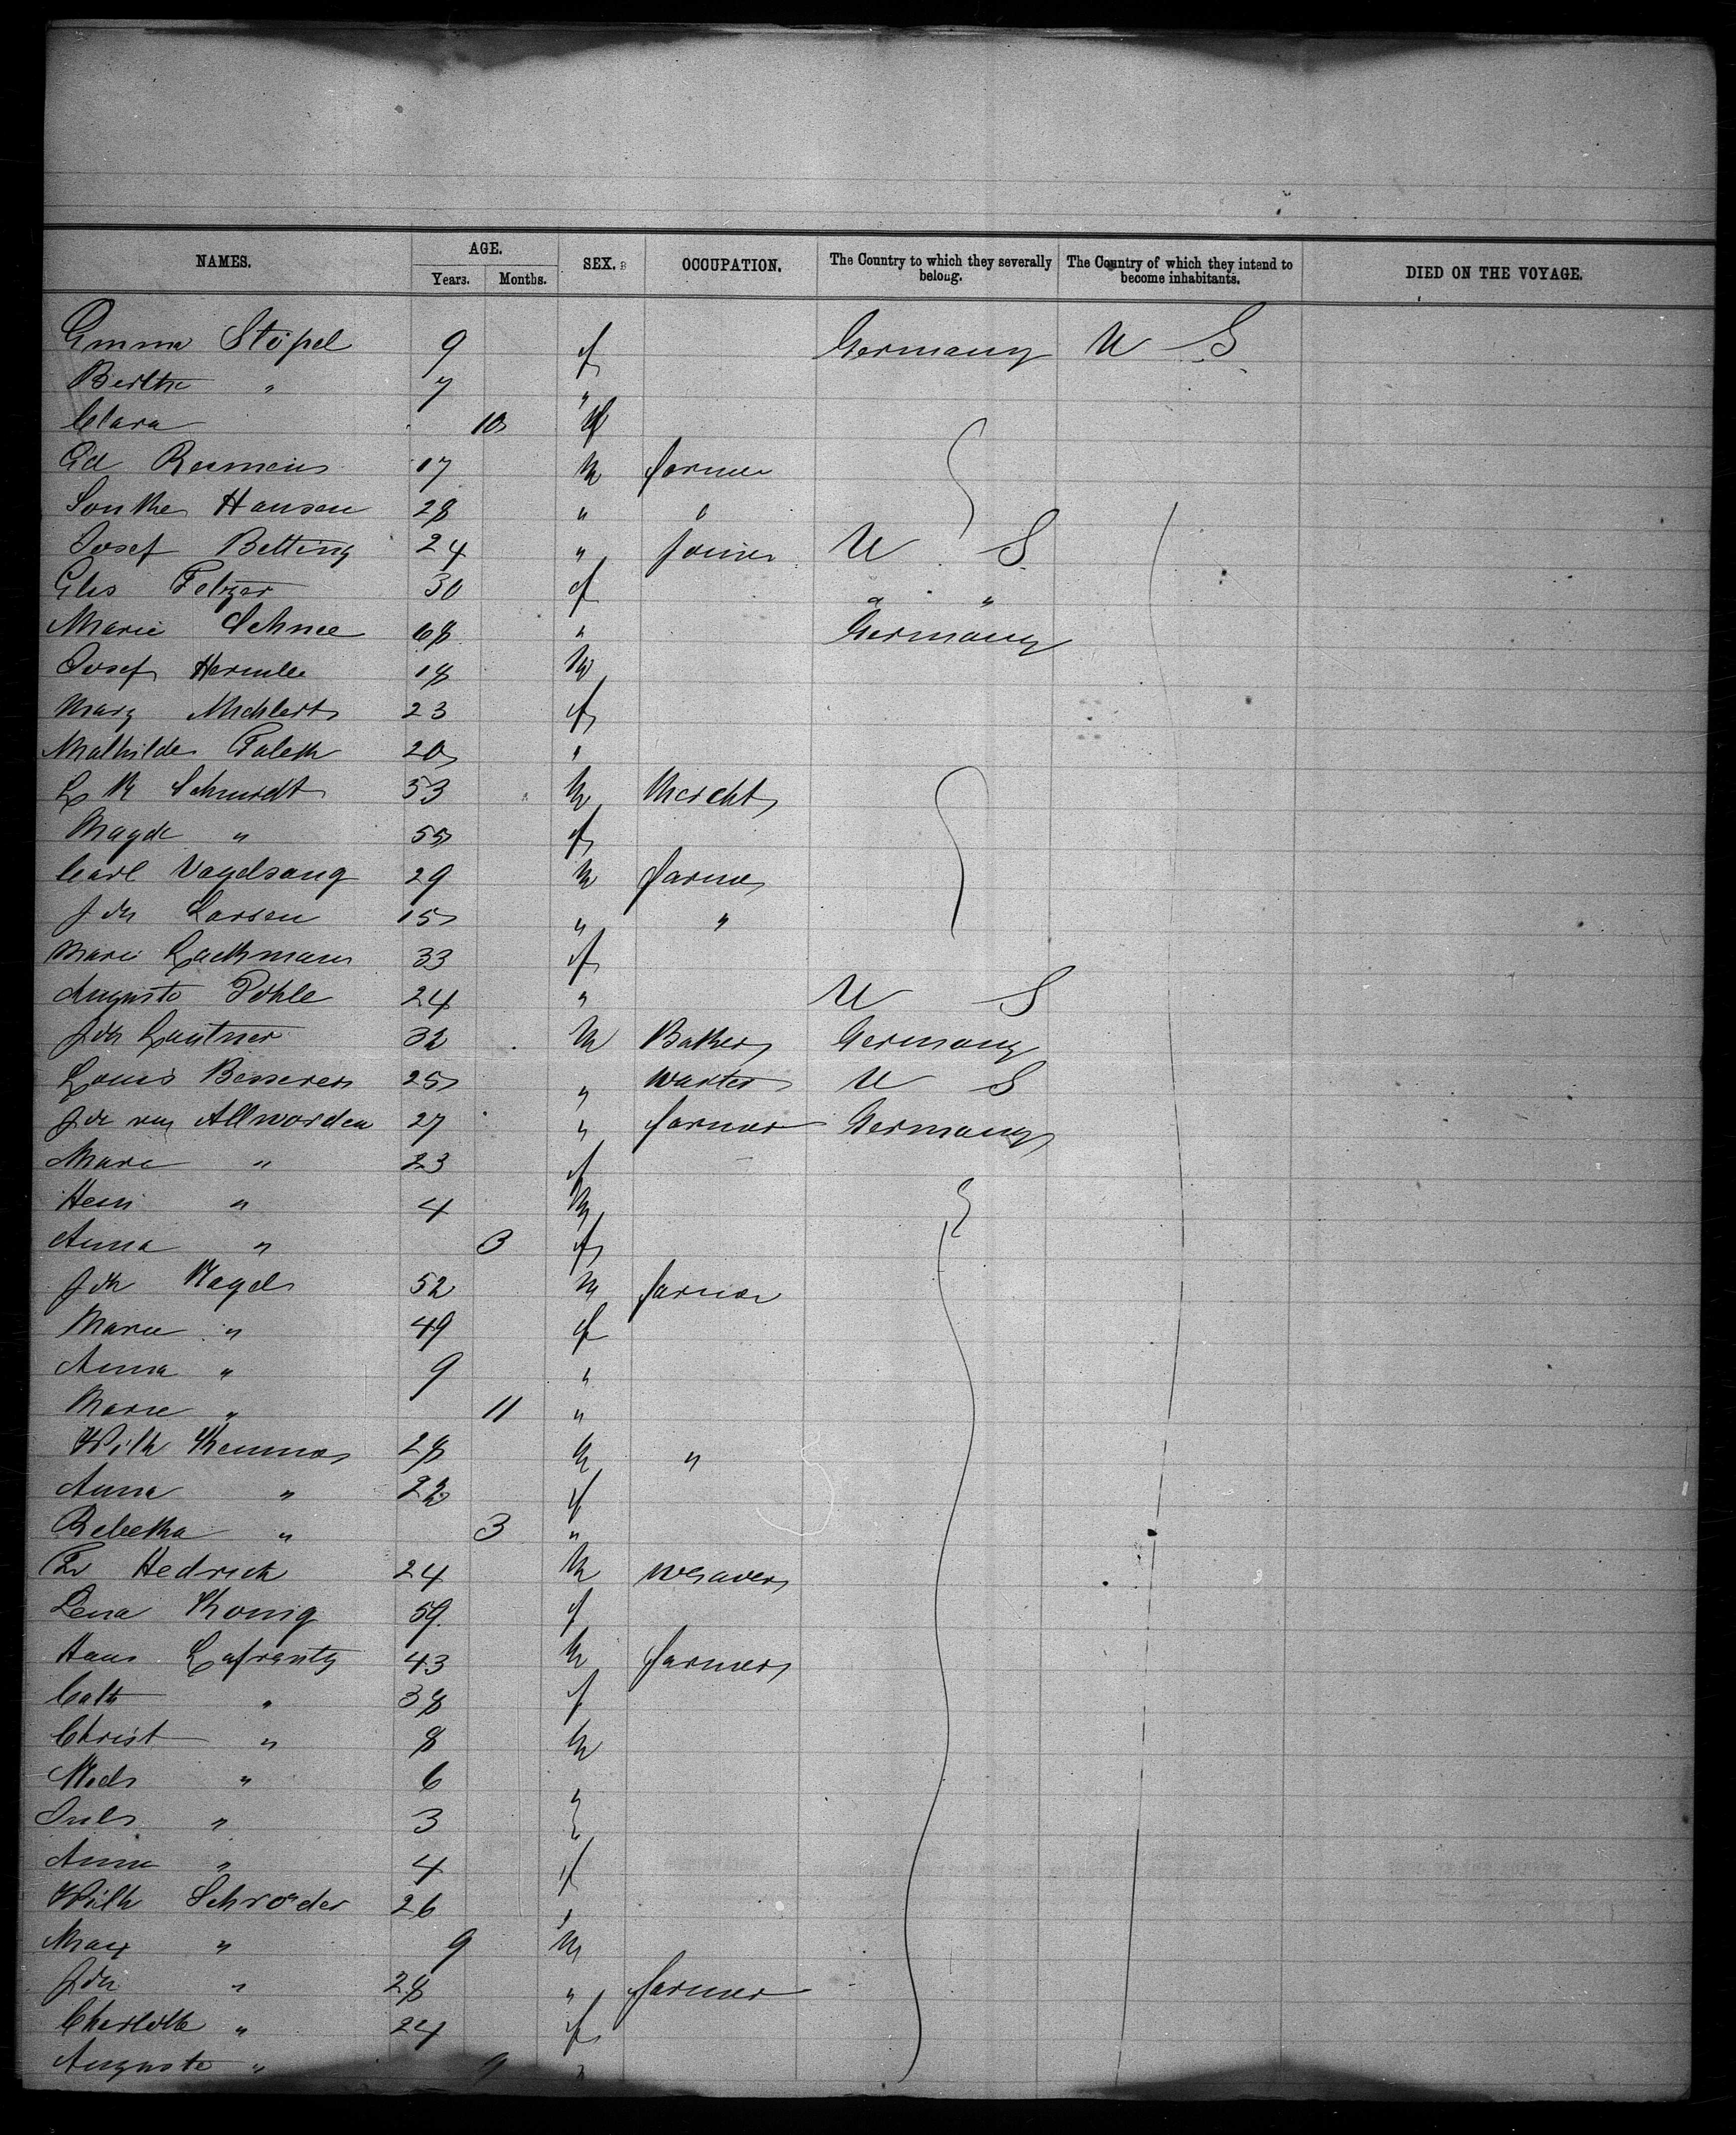 NAMES. AGE. SEX. OCCUPATION. The Country to which they severally belong. The Country of which they intend to become inhabitants. DIED ON THE VOYAGE.
Years. Months.
Emma Stöpel 9 f Germany U S
Bertha " 7 "
Clara 10
Ed 17 m farmer
Sonke Hansen 28 " "
Josef Betting 24 " joiner U S
Elis Felzer 30 f " "
Marie Schnee 68 " Germany
Josef Hermle 18 m
Mary 23 f
Mathilde 20 "
Schmidt 53 m Mercht
Magde " 55 f
Carl Vogelsang 29 m farmer
Joh Larsen 15 " "
Marie Lachmann 33 f
Auguste Pohle 24 " U S
Joh Lautner 32 m Baker Germany
Louis Besserer 25 " waiter U S
Joh von Allworden 27 " farmer Germany
Marie " 23 f
Hein " 4 m
Anna " 3 f
Joh Nagel 52 m farmer
Marie " 49 f
Anna " 9 "
Marie " 11 "
Wilh 28 m "
Anna " 22 f
Rebekka " 3 "
Fr Hedrich 24 m weaver
Lena Konig 59 f
Hans Lafrentz 43 m farmer
Cath " 38 f
Christ " 8 m
" 6 "
Juls " 3 "
Anna " 4 f
Wilh Schroder 26 "
Max " 9 m
Joh " 28 " farmer
Charlotte " 24 f
Auguste " 9 "